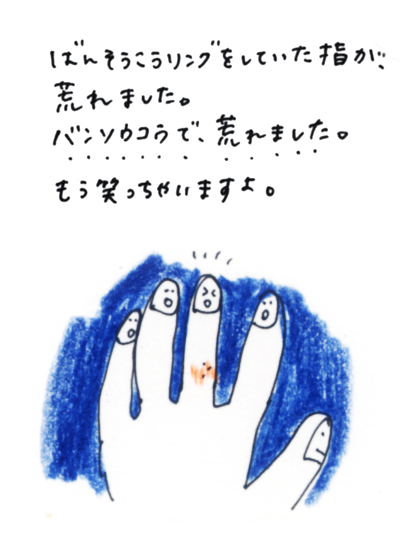 ばんそうこうリングをしていた指が、
荒れました。
バンソウコウで、荒れました。
もう笑っちゃいますよ。